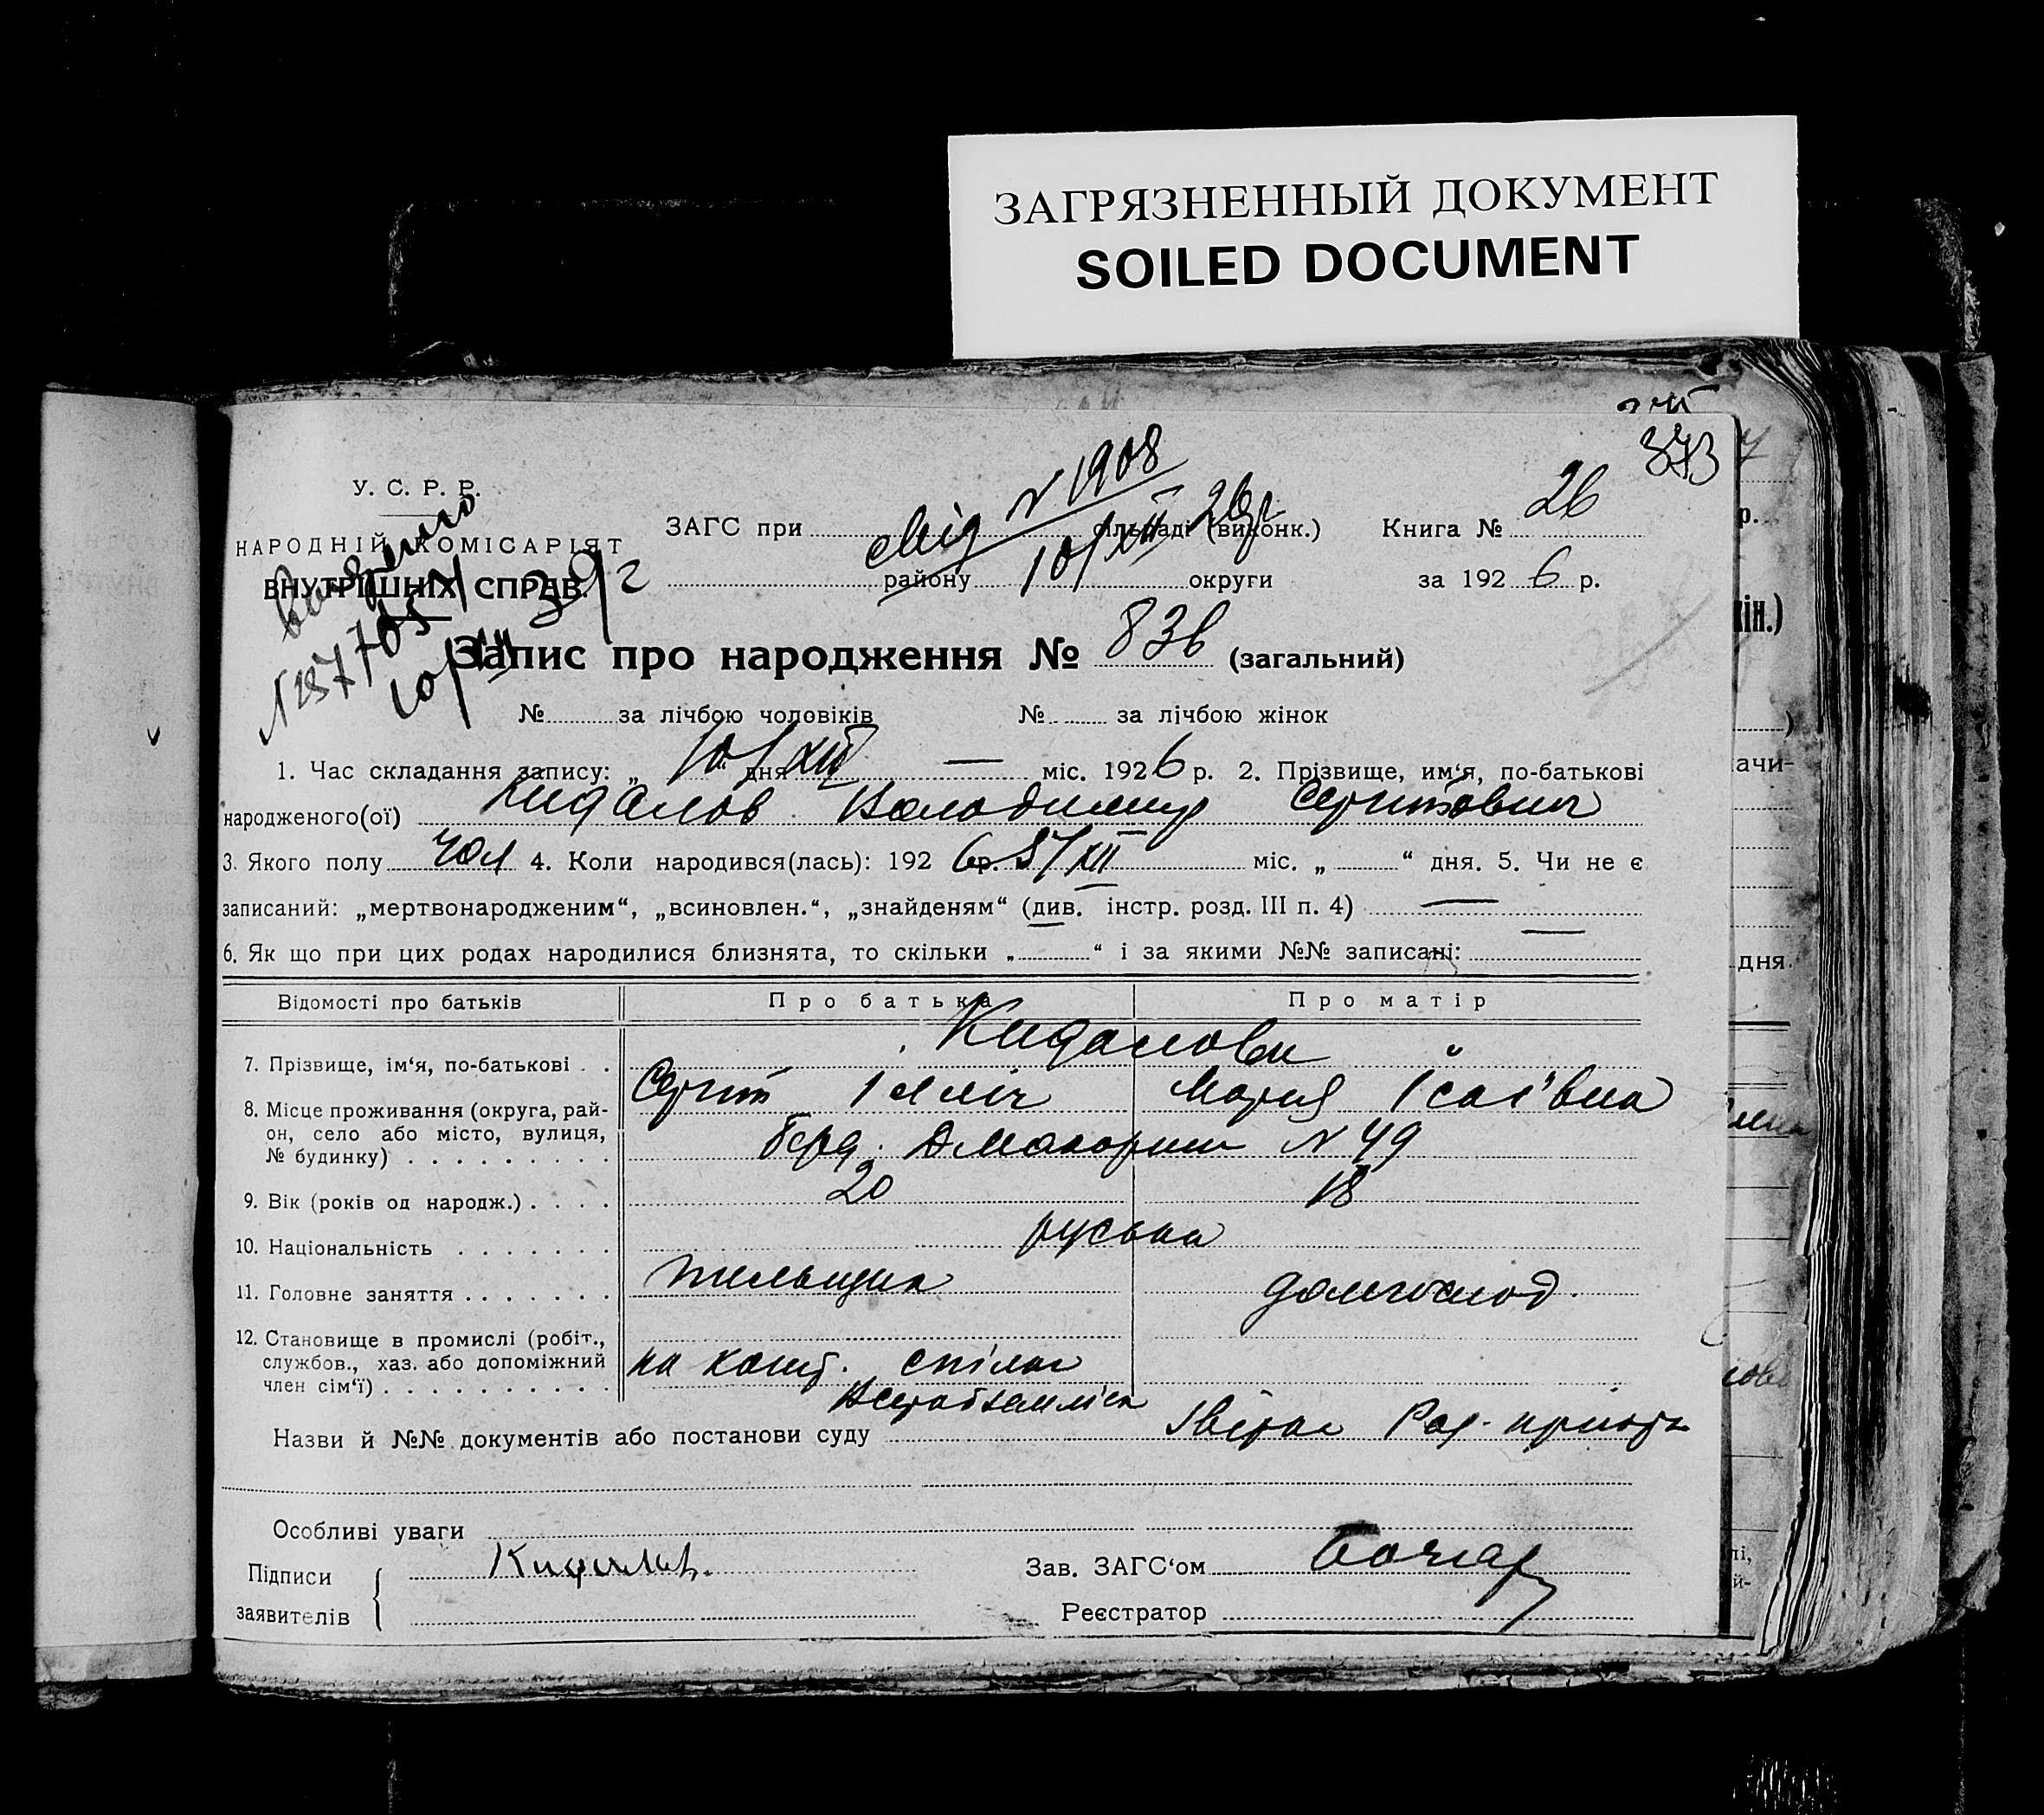 ЗАГРЯЗНЕННЫЙ ДОКУМЕНТ
SOILED DOCUMENT
373
У. С. Р. Р.
НАРОДНІЙ КОМІСАРІЯТ
ВНУТРІШНІХ СПРАВ.
N 1908
ЗАГС при сільраді (виконк.) Книга № 26
району 10/XII 26р округи за 1926 р.
39 г
Запис про народження № 836 (загальний)
№ за лічбою чоловіків № за лічбою жінок
1. Час складання запису: „10/XII“ дня — міс. 1926 р. 2. Прізвище, им‘я, по-батькові
народженого(ої) Кидалов Володимир Сергійович
3. Якого полу чол 4. Коли народився(лась): 1926 р. /XII міс. „ “ дня. 5. Чи не є
записаний: „мертвонародженим“, „всиновлен.“, „знайденям“ (див. інстр. розд. III п. 4) —
6. Як що при цих родах народилися близнята, то скільки „ “ і за якими №№ записані: —
Відомості про батьків Про батька Про матір
Кидалови
7. Прізвище, ім‘я, по-батькові . . Сергій Ілліч Марія Ісаївна
8. Місце проживання (округа, рай-
он, село або місто, вулиця,
№ будинку) N 49
9. Вік (років од народж.) 20 18
10. Національність руська
11. Головне заняття домгоспод.
12. Становище в промислі (робіт.,
службов., хаз. або допоміжний
член сім‘ї) на кошт. спілки
Всеробземліса
Назви й №№ документів або постанови суду
Особливі уваги
Підписи Кидалов. Зав. ЗАГС‘ом
заявителів Реєстратор